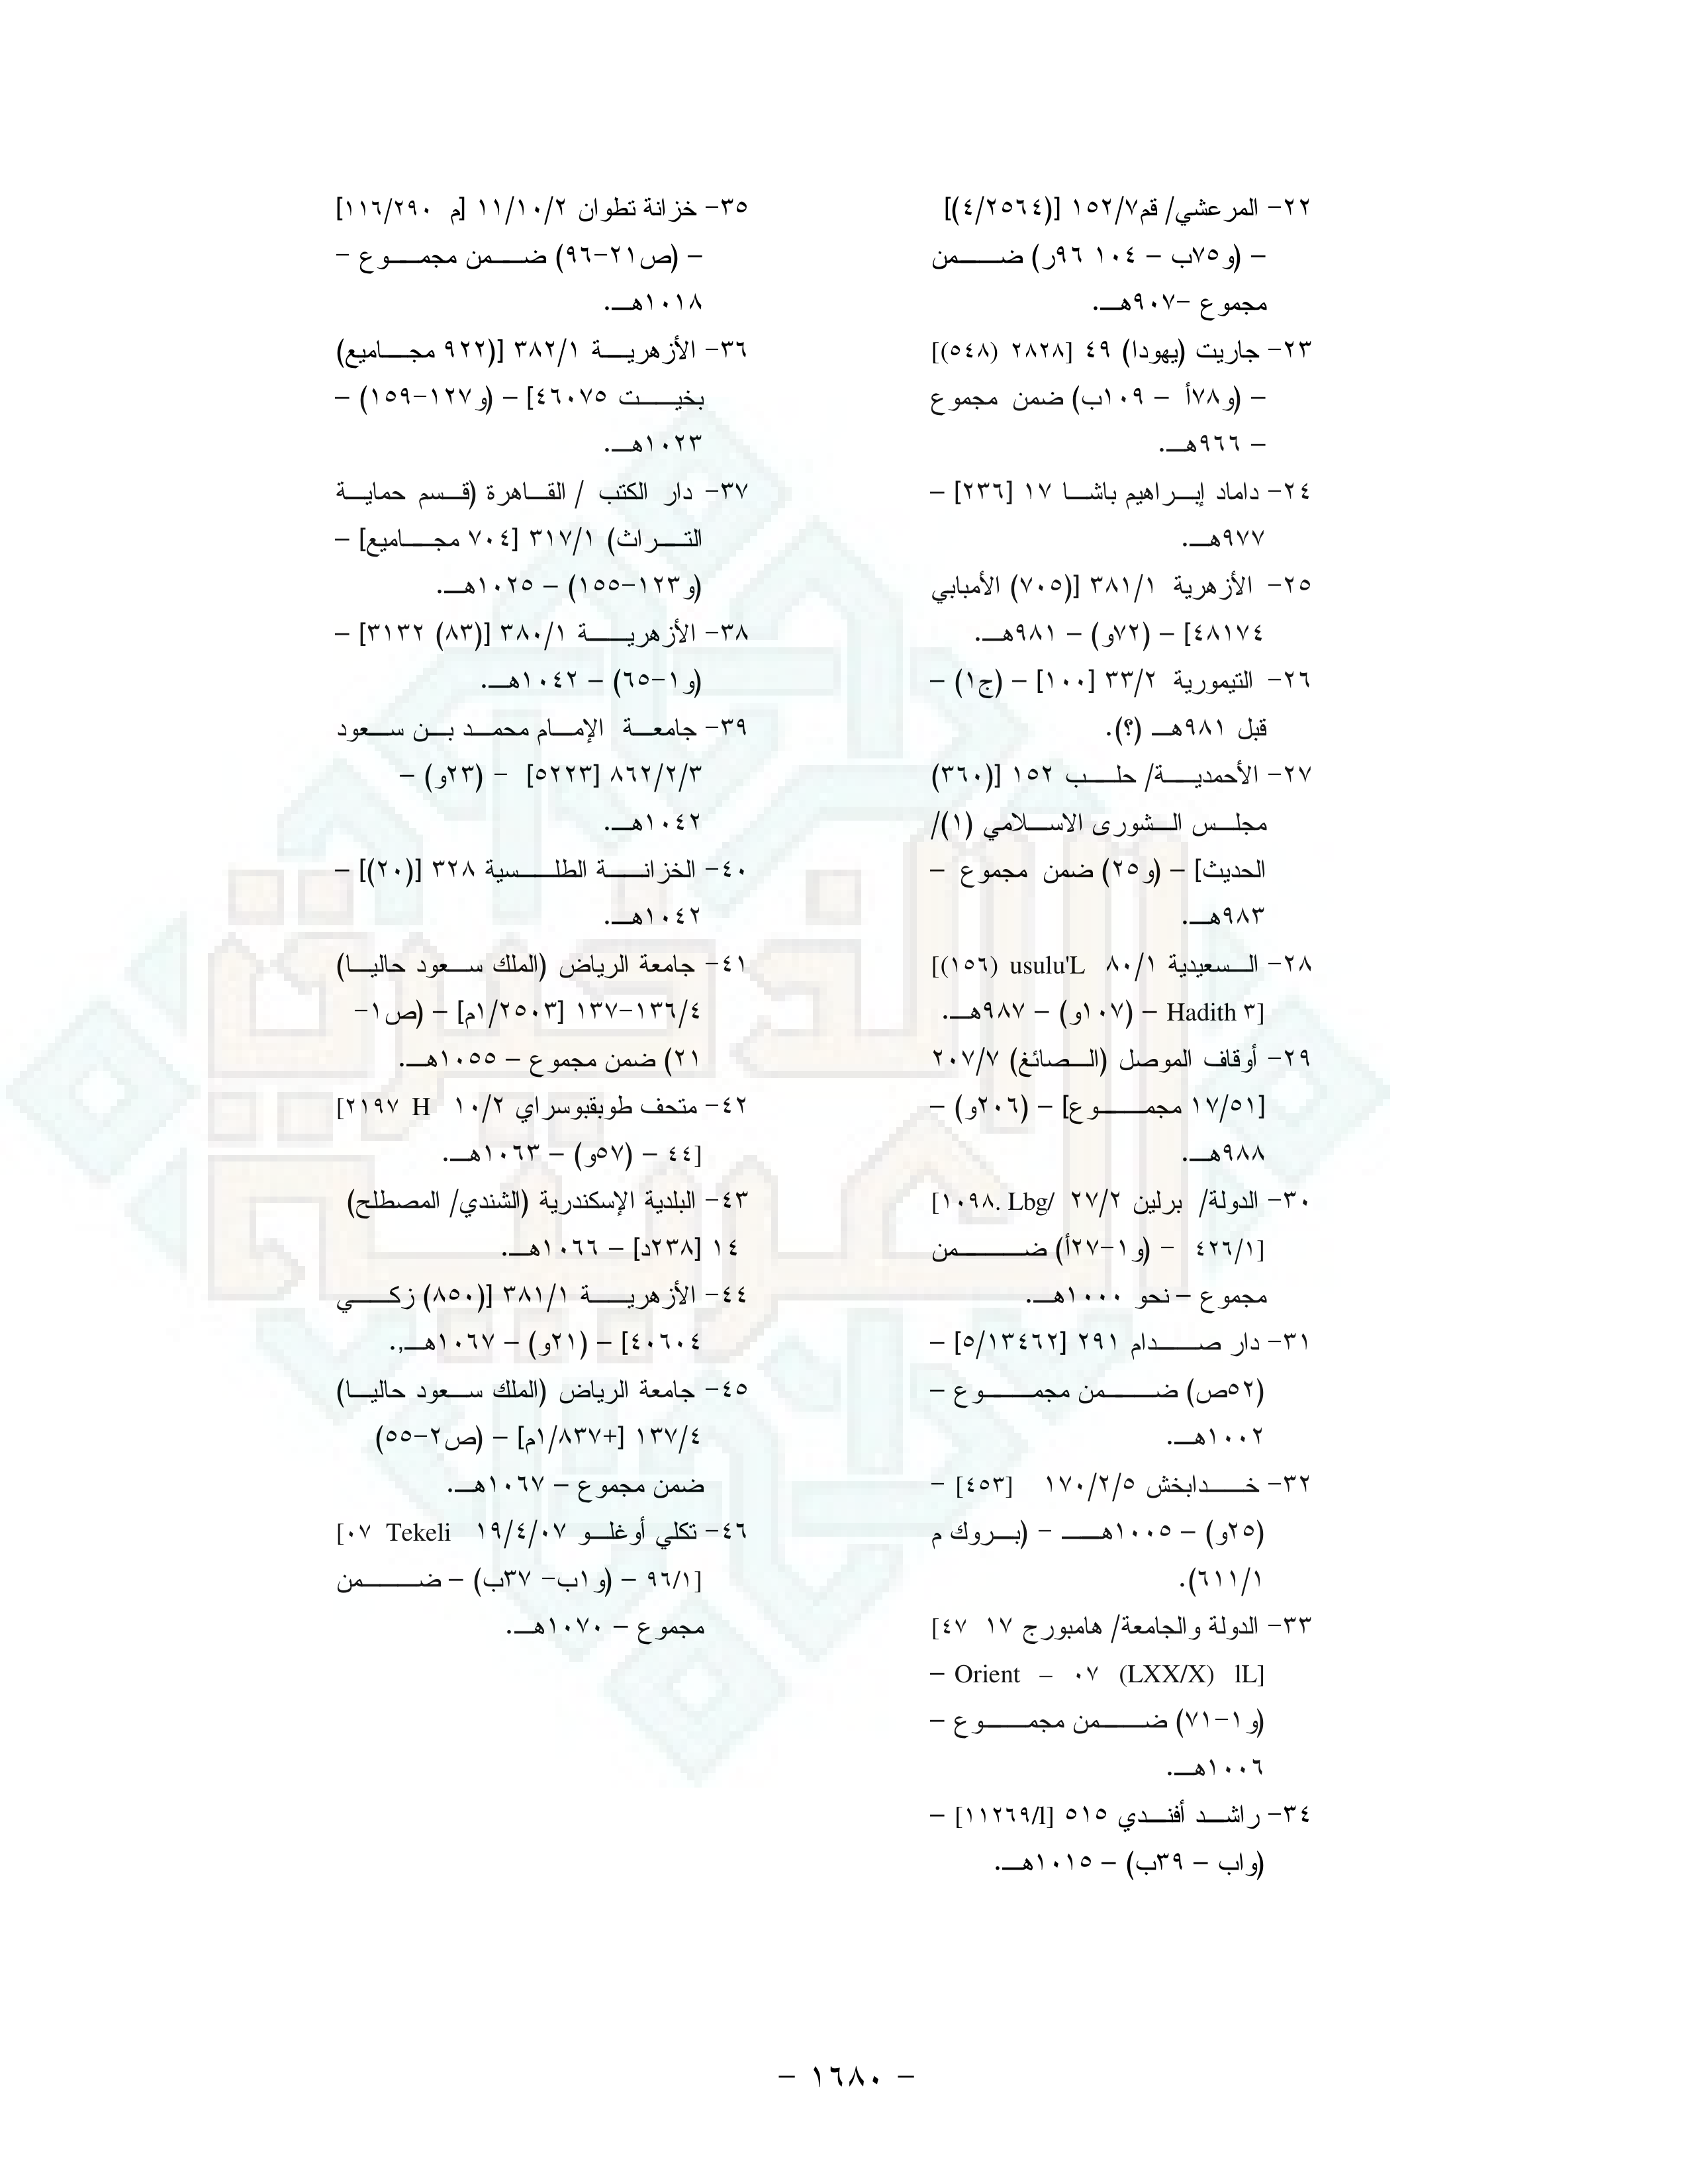 ٢٢- المرعشي/ قم ١٥٢/٧ [(٤/٢٥٦٤)]
– (و٧٥ب – ١٠٤ ٩٦ر) ضمن
مجموع -٩٠٧هـ.
٢٣- جاريت (يهودا) ٤٩ [٢٨٢٨ (٥٤٨)]
– (و٧٨أ – ١٠٩ب) ضمن مجموع
– ٩٦٦هـ.
٢٤- داماد إبراهيم باشا ١٧ [٢٣٦] –
٩٧٧هـ.
٢٥- الأزهرية ٣٨١/١ [(٧٠٥) الأمبابي
٤٨١٧٤] – (٧٢و) – ٩٨١هـ.
٢٦- التيمورية ٣٣/٢ [١٠٠] – (ج١) –
قبل ٩٨١هـ (؟).
٢٧- الأحمدية/ حلب ١٥٢ [(٣٦٠)
مجلس الشورى الاسلامي (١)/
الحديث] – (و٢٥) ضمن مجموع –
٩٨٣هـ.
٢٨- السعيدية ٨٠/١ usulu'L (١٥٦)]
[Hadith ٣ – (١٠٧و) – ٩٨٧هـ.
٢٩- أوقاف الموصل (الصائغ) ٢٠٧/٧
[١٧/٥١ مجموع] – (٢٠٦و) –
٩٨٨هـ.
٣٠- الدولة/ برلين ٢٧/٢ /Lbg .١٠٩٨]
[٤٢٦/١ – (و١-٢٧أ) ضمن
مجموع – نحو ١٠٠٠هـ.
٣١- دار صدام ٢٩١ [٥/١٣٤٦٢] –
(٥٢ص) ضمن مجموع –
١٠٠٢هـ.
٣٢- خدابخش ١٧٠/٢/٥ [٤٥٣] –
(٢٥و) – ١٠٠٥هـ – (بروك م
٦١١/١).
٣٣- الدولة والجامعة/ هامبورج ١٧ ٤٧]
[Orient – ٠٧ (LXX/X) lL –
(و١-٧١) ضمن مجموع –
١٠٠٦هـ.
٣٤- راشد أفندي ٥١٥ [١١٢٦٩/l] –
(واب – ٣٩ب) – ١٠١٥هـ.
٣٥- خزانة تطوان ١١/١٠/٢ [م ١١٦/٢٩٠]
– (ص٢١-٩٦) ضمن مجموع –
١٠١٨هـ.
٣٦- الأزهرية ٣٨٢/١ [(٩٢٢ مجاميع)
بخيت ٤٦٠٧٥] – (و١٢٧-١٥٩) –
١٠٢٣هـ.
٣٧- دار الكتب / القاهرة (قسم حماية
التراث) ٣١٧/١ [٧٠٤ مجاميع] –
(و١٢٣-١٥٥) – ١٠٢٥هـ.
٣٨- الأزهرية ٣٨٠/١ [(٨٣) ٣١٣٢] –
(و١-٦٥) – ١٠٤٢هـ.
٣٩- جامعة الإمام محمد بن سعود
٨٦٢/٢/٣ [٥٢٢٣] – (٢٣و) –
١٠٤٢هـ.
٤٠- الخزانة الطلسية ٣٢٨ [(٢٠)] –
١٠٤٢هـ.
٤١- جامعة الرياض (الملك سعود حاليا)
١٣٦/٤-١٣٧ [١/٢٥٠٣م] – (ص١-
٢١) ضمن مجموع – ١٠٥٥هـ.
٤٢- متحف طوبقبوسراي ١٠/٢ H ٢١٩٧]
[٤٤ – (٥٧و) – ١٠٦٣هـ.
٤٣- البلدية الإسكندرية (الشندي/ المصطلح)
١٤ [٢٣٨د] – ١٠٦٦هـ.
٤٤- الأزهرية ٣٨١/١ [(٨٥٠) زكي
٤٠٦٠٤] – (٢١و) – ١٠٦٧هـ.,
٤٥- جامعة الرياض (الملك سعود حاليا)
١٣٧/٤ [+١/٨٣٧م] – (ص٢-٥٥)
ضمن مجموع – ١٠٦٧هـ.
٤٦- تكلي أوغلو ١٩/٤/٠٧ Tekeli ٠٧]
[٩٦/١ – (و١ب- ٣٧ب) – ضمن
مجموع – ١٠٧٠هـ.
– ١٦٨٠ –